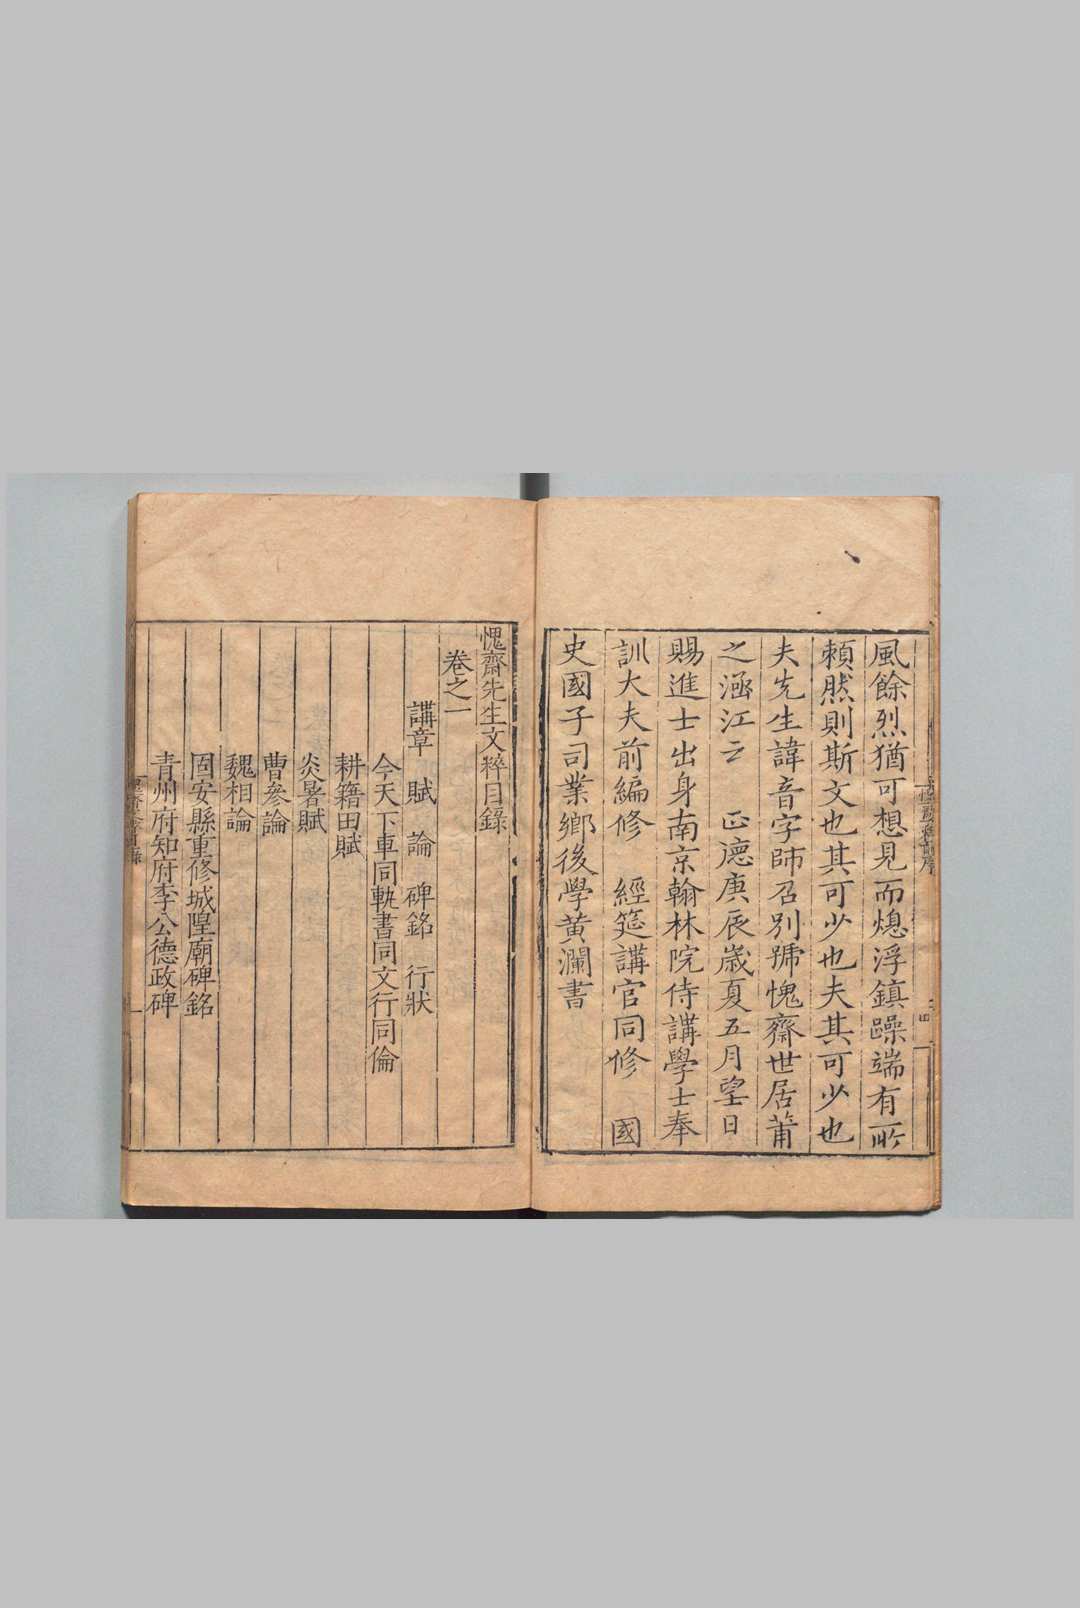 風餘烈猶可想見而熄浮鎮躁端有所
賴然則斯文也其可少也夫其可少也
夫先生諱音字師召別號愧齋世居莆
之涵江云 正德庚辰歲夏五月望日
賜進士出身南京翰林院侍講學士奉
訓大夫前編修 經筵講官同修 國
史國子司業鄉後學黄瀾書
愧齋先生文粹目錄
卷之一
講章 賦 論 碑銘 行狀
今天下車同軌書同文行同倫
耕籍田賦
炎暑賦
曹參論
魏相論
固安縣重修城隍廟碑銘
青州府知府李公德政碑